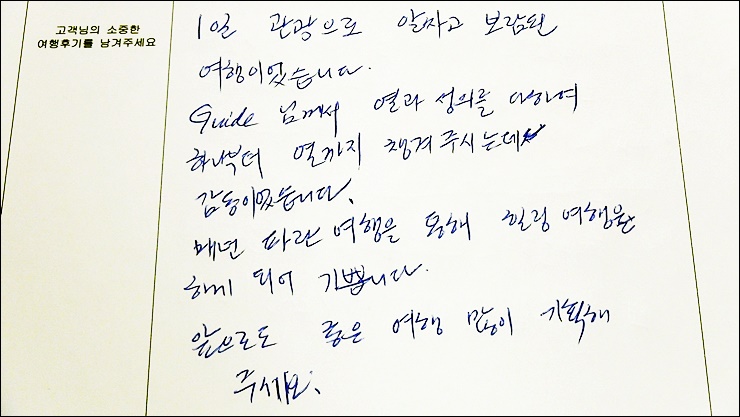 고객님의 소중한
여행후기를 남겨주세요
1일 관광으로 알차고 보람된
여행이었습니다.
Guide 님께서 열과 성의를 다하여
하나부터 열까지 챙겨 주시는데
감동이었습니다.
매년 파란여행을 통해 힐링 여행을
하게 되어 기쁩니다.
앞으로도 좋은 여행 많이 기획해
주세요.